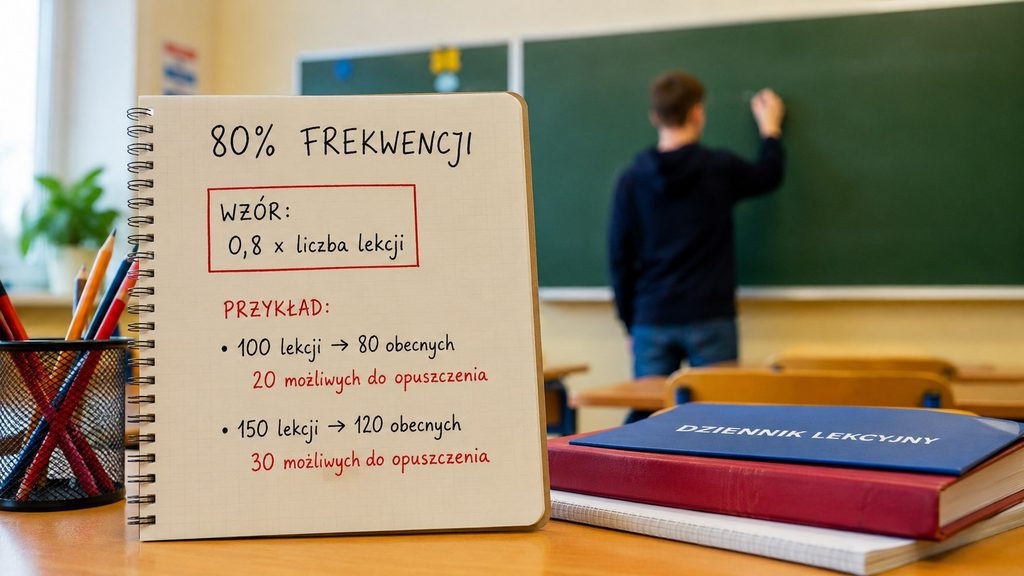 80% FREKWENCJI
WZÓR:
0,8 x liczba lekcji
PRZYKŁAD:
• 100 lekcji → 80 obecnych
20 możliwych do opuszczenia
• 150 lekcji → 120 obecnych
30 możliwych do opuszczenia
DZIENNIK LEKCYJNY